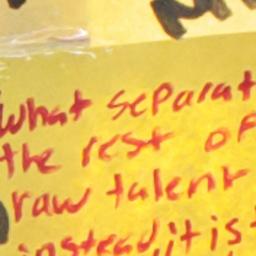 what separat
the rest of
raw talent
instead, it is